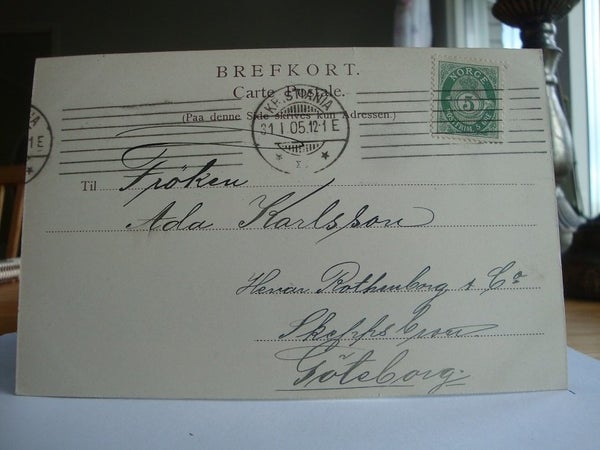 BREFKORT.
Carte Postale.
(Paa denne Side skrives kun Adressen.)
NORGE
5
KRISTIANIA
31 I 05.12-1 E
Til Fröken
Ada Karlsson
Herrar Rothenborg & Co
Skeppsbron
Göteborg.